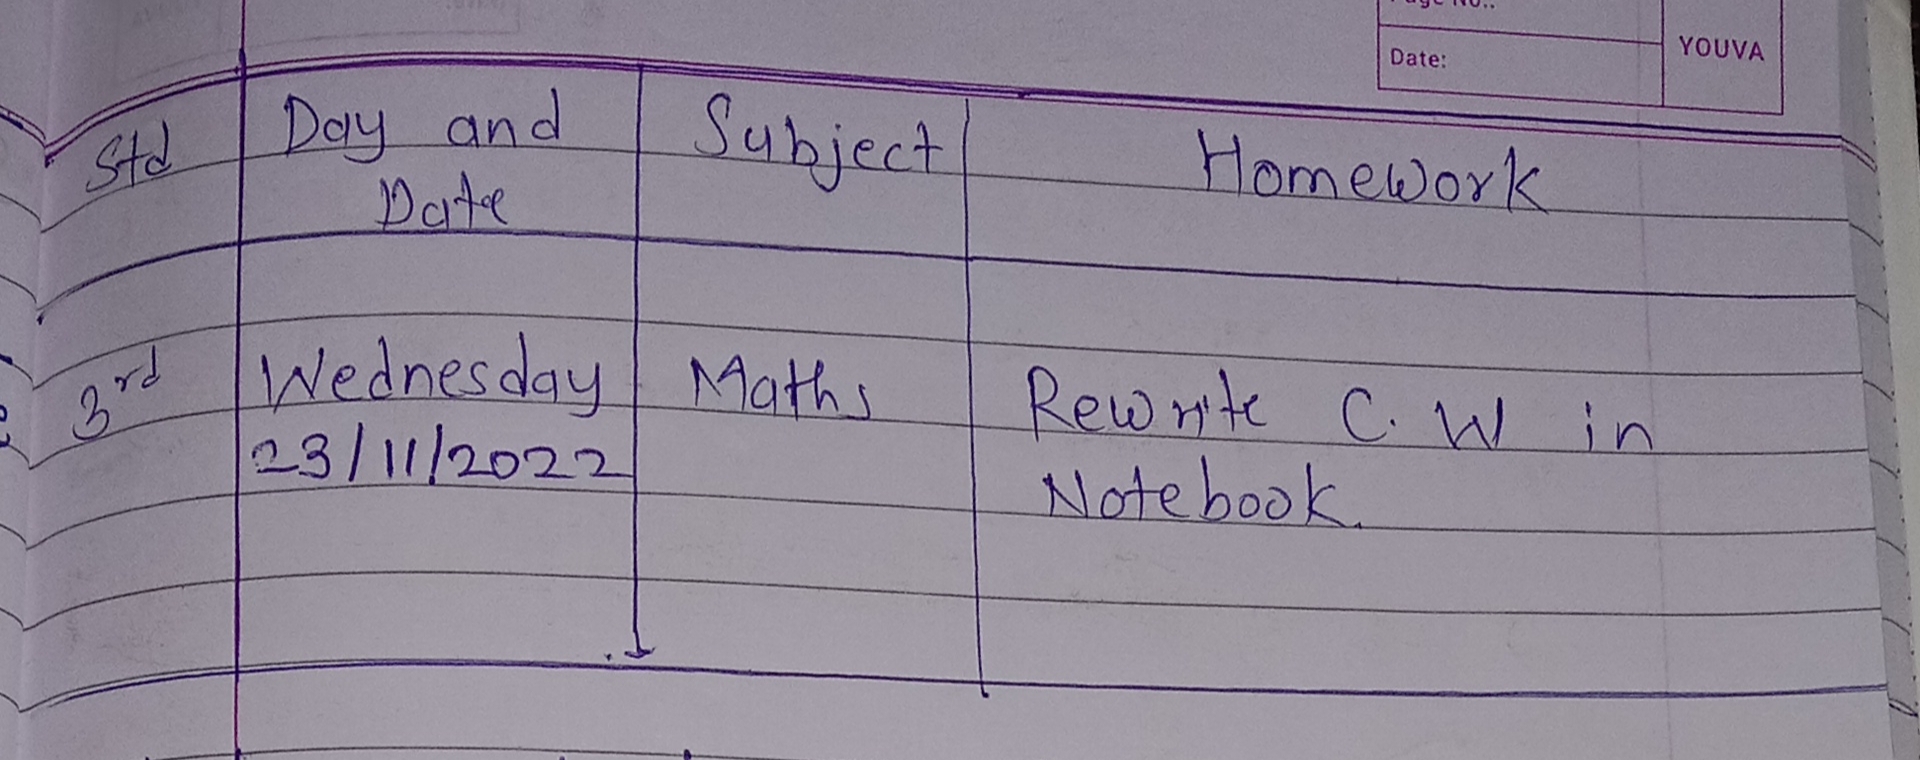 Page No.:
Date:
YOUVA
Std Day and Date Subject Homework
3rd Wednesday Maths Rewrite C.W in
23/11/2022 Notebook.